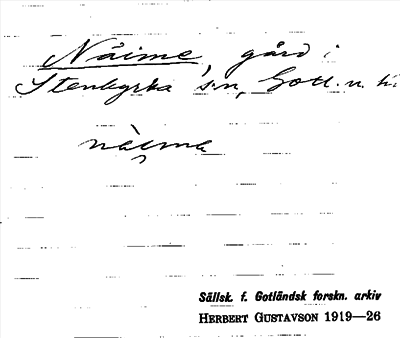 Näime, gård i
Stenkyrka s:n, Gotl. n. hd.
nàima
Sällsk. f. Gotländsk forskn. arkiv
HERBERT GUSTAVSON 1919—26